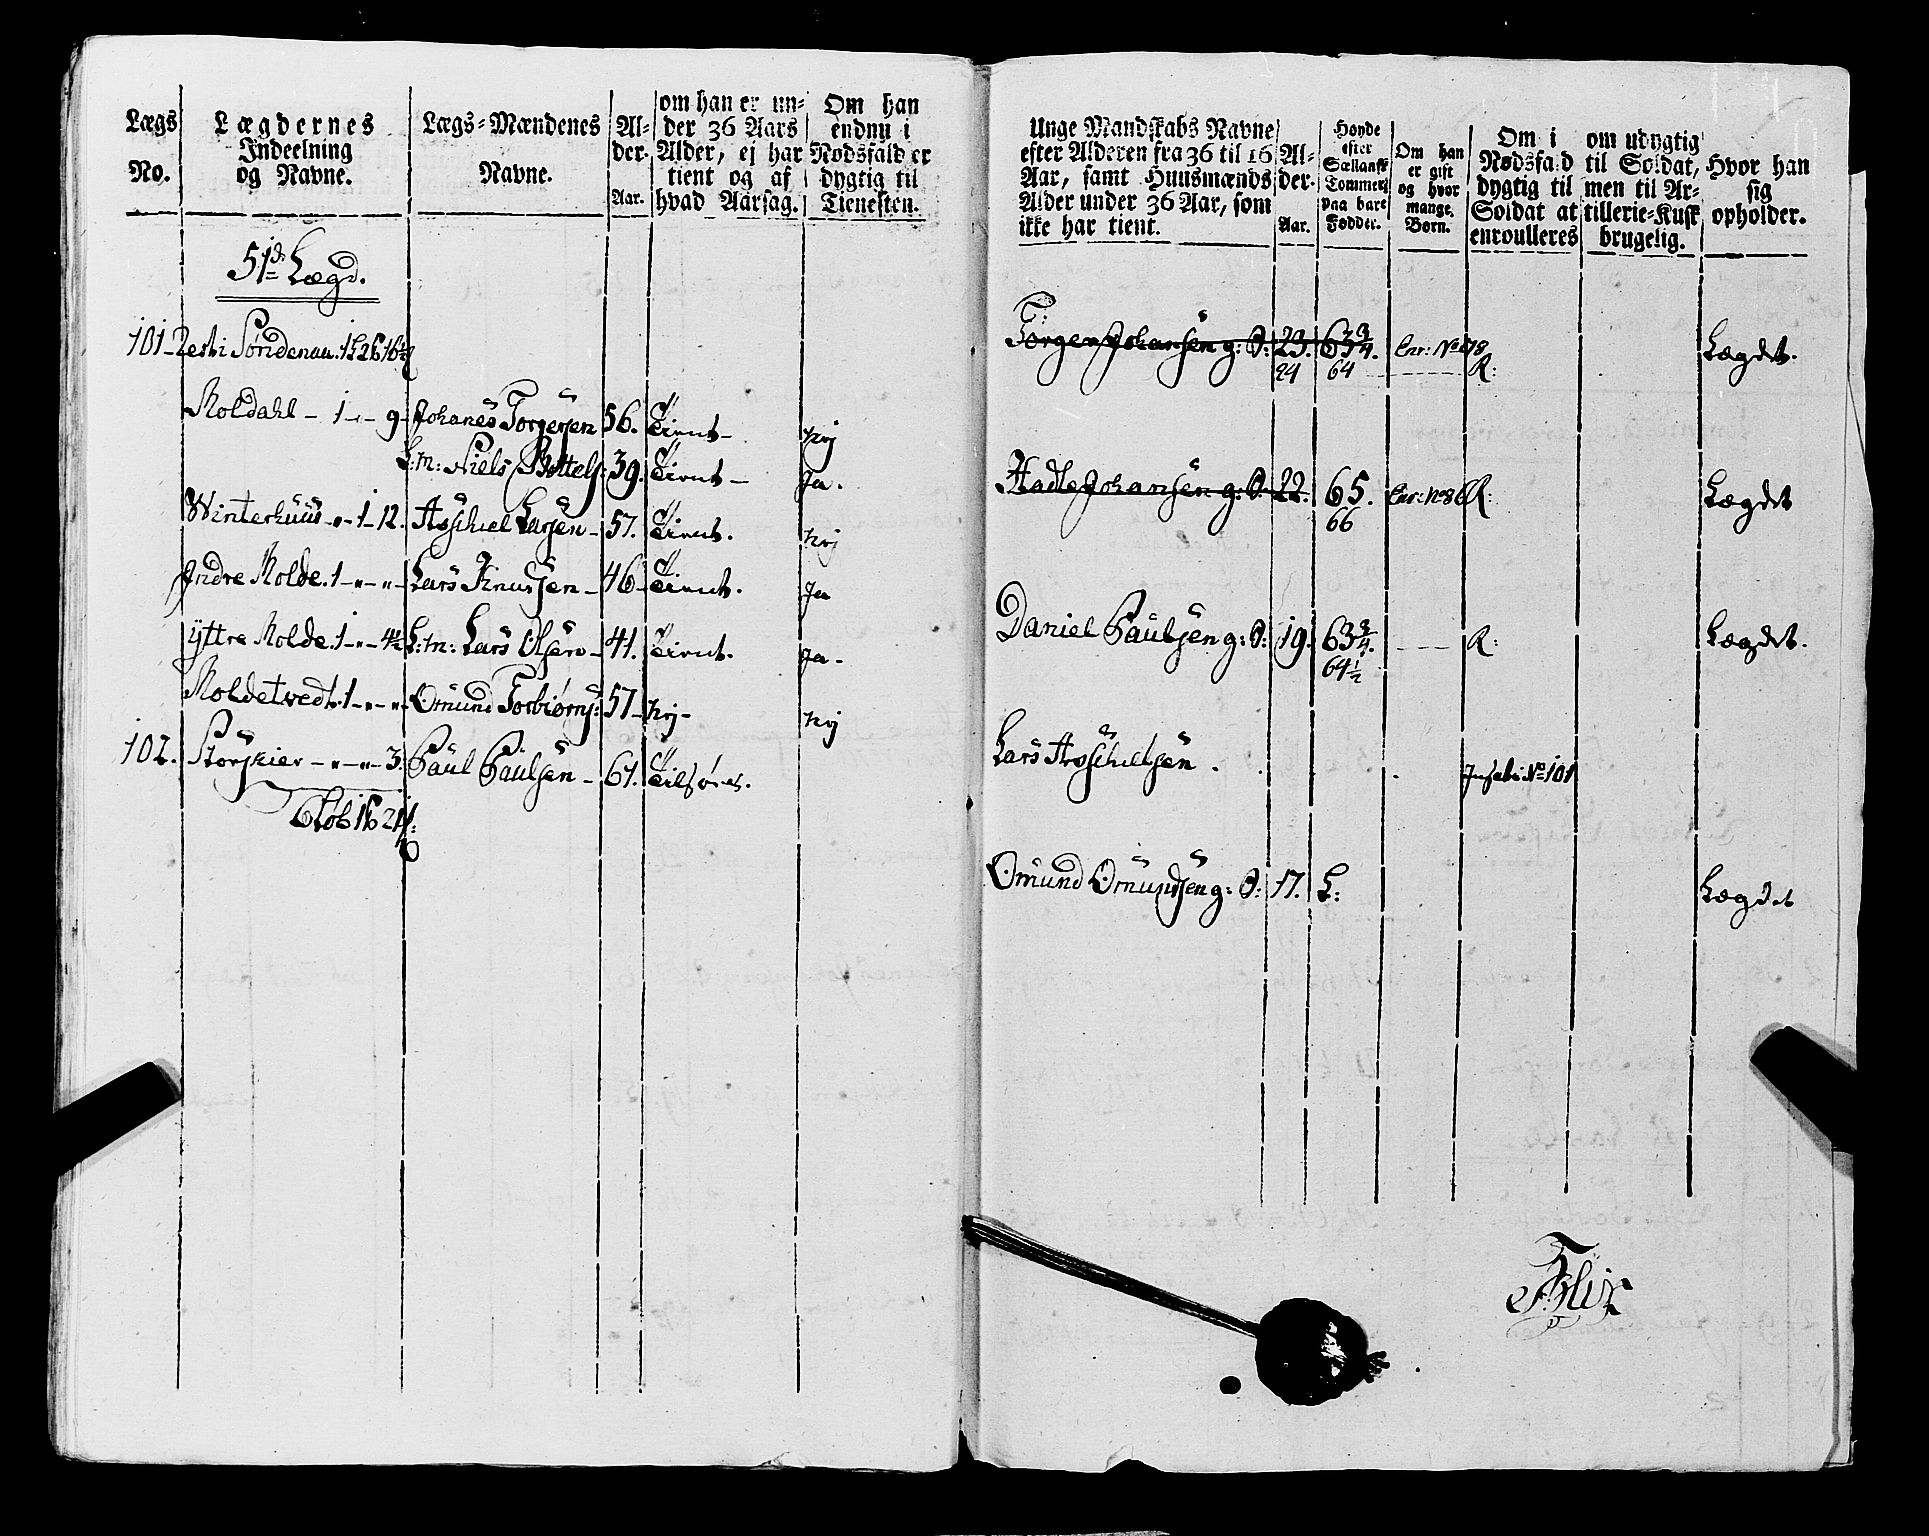 Lægs No.
Lægdernes Indeelning og Navne.
Lægs-Mændenes Navne.
Al-der. Aar.
om han er un-der 36 Aars Alder, ej har tient og af hvad Aarsag.
Om han endnu i Nødsfald er dygtig til Tienesten.
51de Lægd.
101 Søndenaa
Moldahl - 1 - " - 9 - Johanes Torgersen 56. Tient - nej
L:m: Niels 39. Tient - Ja.
Winterhuus - " - 1 - 12. Larsen - 57. Tient. nej
Indre Molde. 1 - " - " - Lars Knudsen - 46 - Tient. Ja
Yttre Molde. 1 - " - 4½ L:m: Lars Olsen - 41. Tient. Ja -
Moldetvedt. 1 - " - " - Omund Torbiørns: 57 - nej - nej
102. Storskier - " - " - 3. Paul Paulsen - 61. Tilføres.
Unge Mandskabs Navne efter Alderen fra 36 til 16 Aar, samt Huusmænds Alder under 36 Aar, som ikke har tient.
Al-der. Aar.
Høyde efter Sællansk Tommer paa bare Fødder.
Om han er gift og hvor mange Børn.
Om i Nødsfald dygtig til Soldat at enroulleres
om udygtig til Soldat, men til Ar-tillerie-Kusk brugelig.
Hvor han sig opholder.
Torger Johansen g: S: 23. 63¾. Enr: No 678 Lægdet.
24 64 R:
Hadle Johansen g: S: 22. 65. Enr: No R: Lægdet
66
Daniel Paulsen g: S: 19. 63¾. - - - R: Lægdet.
64½
Lars No 101
Omund Omundsen g: S: 17. L: Lægdet